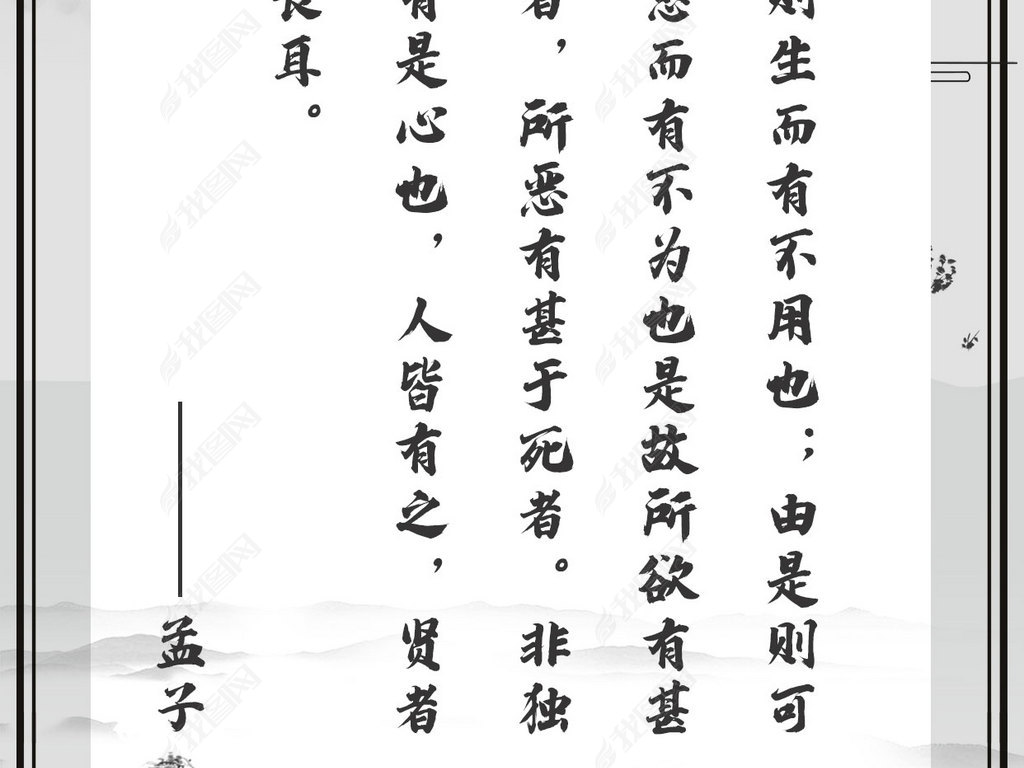 则生而有不用也；由是则可
恶而有不为也是故所欲有甚
者，所恶有甚于死者。非独
有是心也，人皆有之，贤者
丧耳。
——孟子